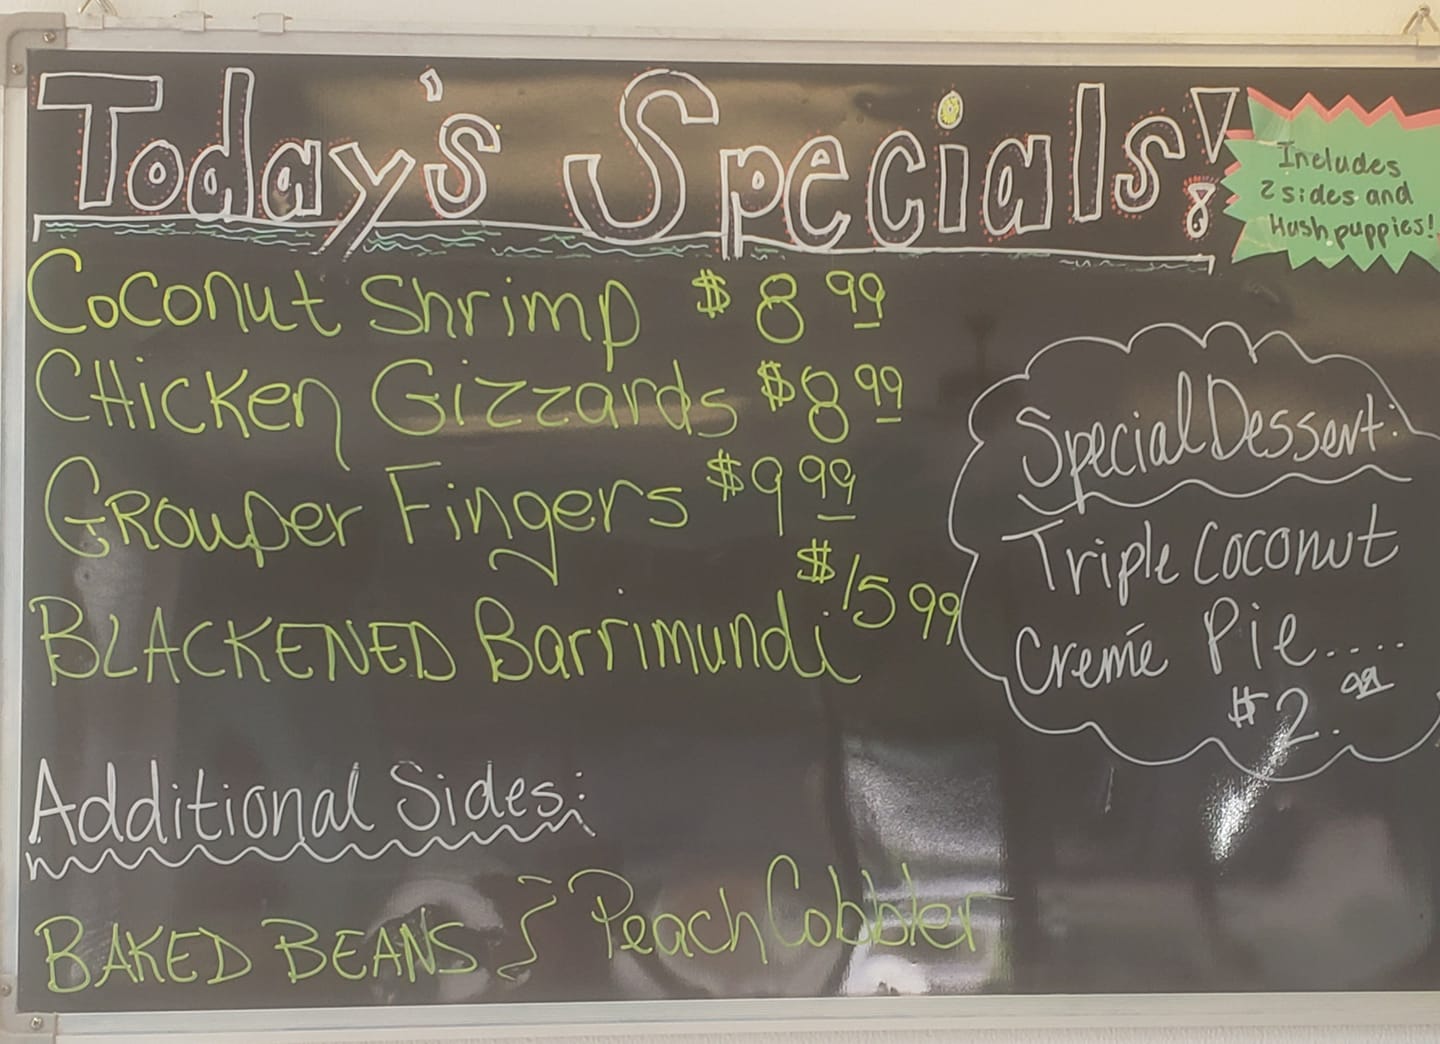 Today's Specials!
Includes
2 sides and
Hush puppies!
Coconut Shrimp $8 99
CHicken Gizzards $8 99
Grouper Fingers $9 99
BLACKENED Barrimundi $15 99
Special Dessert:
Triple Coconut
Cremé Pie....
$2.99
Additional Sides:
BAKED BEANS } Peach Cobbler